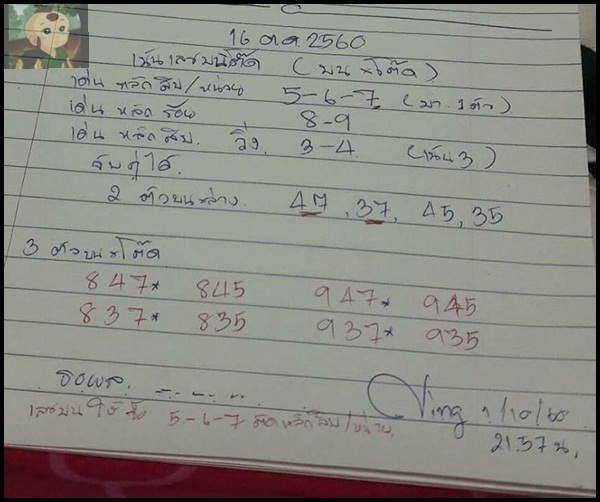 16 ต.ค. 2560
เน้นเลขบน&โต๊ด (บน&โต๊ด)
เด่น หลักสิบ/หน่วย 5-6-7 (มา 1 ตัว)
เด่น หลักร้อย 8-9
เด่น หลักสิบ. วิ่ง. 3-4 (เน้น 3)
จับคู่ได้.
2 ตัวบน ล่าง. 47, 37, 45, 35
3 ตัวบน&โต๊ด
847* 845 947* 945
837* 835 937* 935
เลขบน 5-6-7 ติดหลักสิบ/หน่วย.
Ning 1/10/60
21.57 น.